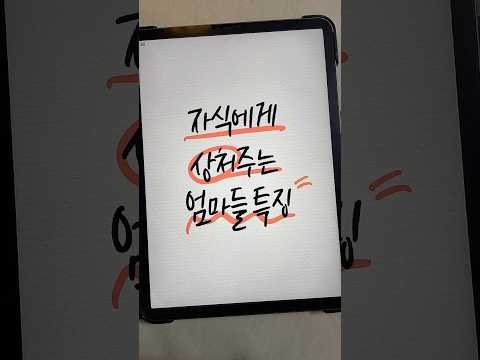 자식에게
상처주는
엄마들 특징